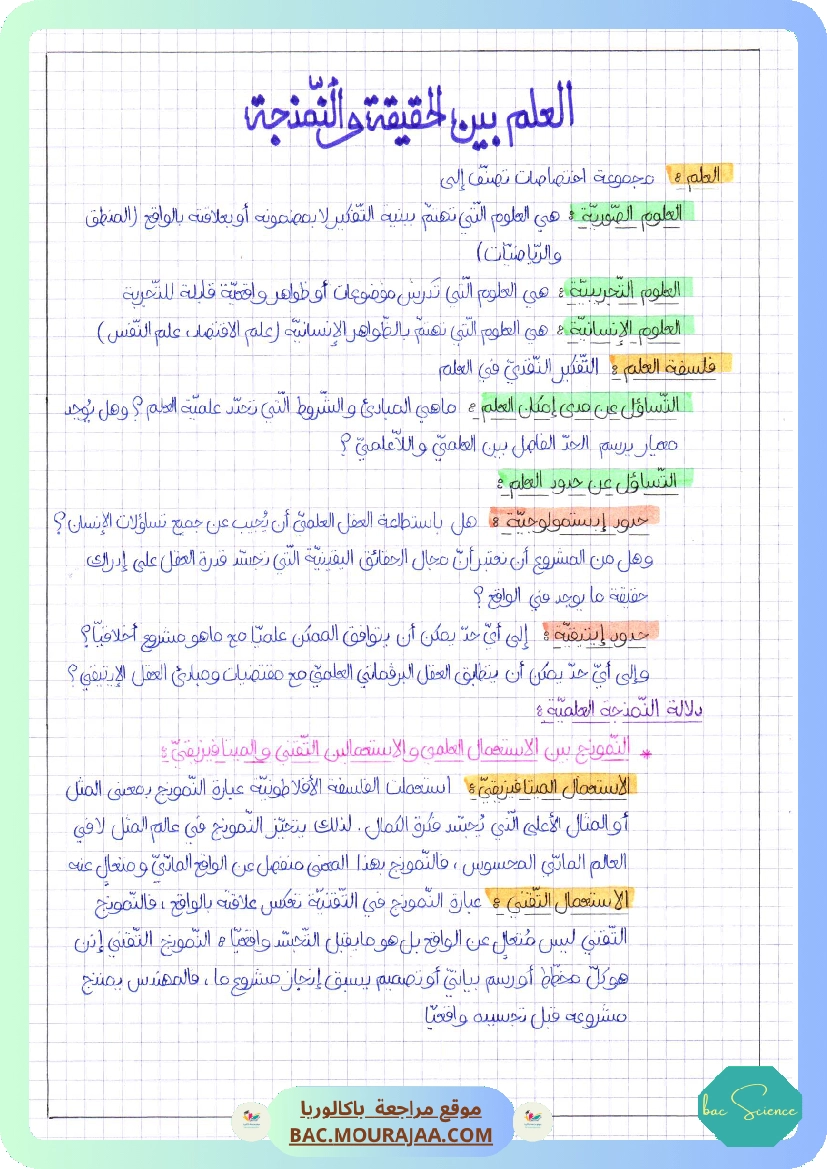 العلم بين الحقيقة والنّمذجة
العلم : مجموعة اختصاصات تصنّف إلى
العلوم الصّوريّة : هي العلوم الّتي تهتمّ ببنية التّفكير لا بمضمونه أو بعلاقته بالواقع (المنطق
والرّياضيّات)
العلوم التّجريبيّة : هي العلوم الّتي تدرس موضوعات أو ظواهر واقعيّة قابلة للتّجربة
العلوم الإنسانيّة : هي العلوم الّتي تهتمّ بالظّواهر الإنسانيّة (علم الاقتصاد، علم النّفس)
فلسفة العلم : التّفكير النّقديّ في العلم
التّساؤل عن مدى إمكان العلم : ماهي المبادئ والشّروط الّتي تحدّد علميّة العلم ؟ وهل يُوجد
معيار يرسم الحدّ الفاصل بين العلميّ واللّاعلميّ ؟
التّساؤل عن حدود العلم :
حدود إبستمولوجيّة : هل باستطاعة العقل العلميّ أن يُجيب عن جميع تساؤلات الإنسان ؟
وهل من المشروع أن نعتبر أنّ مجال الحقائق اليقينيّة الّتي تجسّد قدرة العقل على إدراك
حقيقة ما يوجد في الواقع ؟
حدود إيتيقيّة : إلى أيّ حدّ يمكن أن يتوافق الممكن علميّا مع ماهو مشروع أخلاقيّا؟
وإلى أيّ حدّ يمكن أن يتطابق العقل البرقماتي العلميّ مع مقتضيات ومبادئ العقل الإيتيقي ؟
دلالة النّمذجة العلميّة :
* النّموذج بين الاستعمال العلمي والاستعمالين التّقني والميتافيزيقيّ :
الاستعمال الميتافيزيقيّ : استعملت الفلسفة الأفلاطونيّة عبارة النّموذج بمعنى المثل
أو المثال الأعلى الّتي يُجسّد فكرة الكمال . لذلك يتحيّز النّموذج في عالم المثل لا في
العالم المادّي المحسوس ، فالنّموذج بهذا المعنى منفصل عن الواقع المادّيّ و متعالٍ عنه
الاستعمال التّقني : عبارة النّموذج في التّقنيّة تعكس علاقته بالواقع ، فالنّموذج
التّقني ليس مُتعالٍ عن الواقع بل هو ما يقبل التّجسّد واقعيّا : النّموذج التّقني إذن
هو كلّ مخطّط أو رسم بيانيّ أو تصميم يسبق إنجاز مشروع ما ، فالمهندس يمنذج
مشروعه قبل تجسيده واقعيّا
موقع مراجعة باكالوريا
BAC.MOURAJAA.COM
bac Science